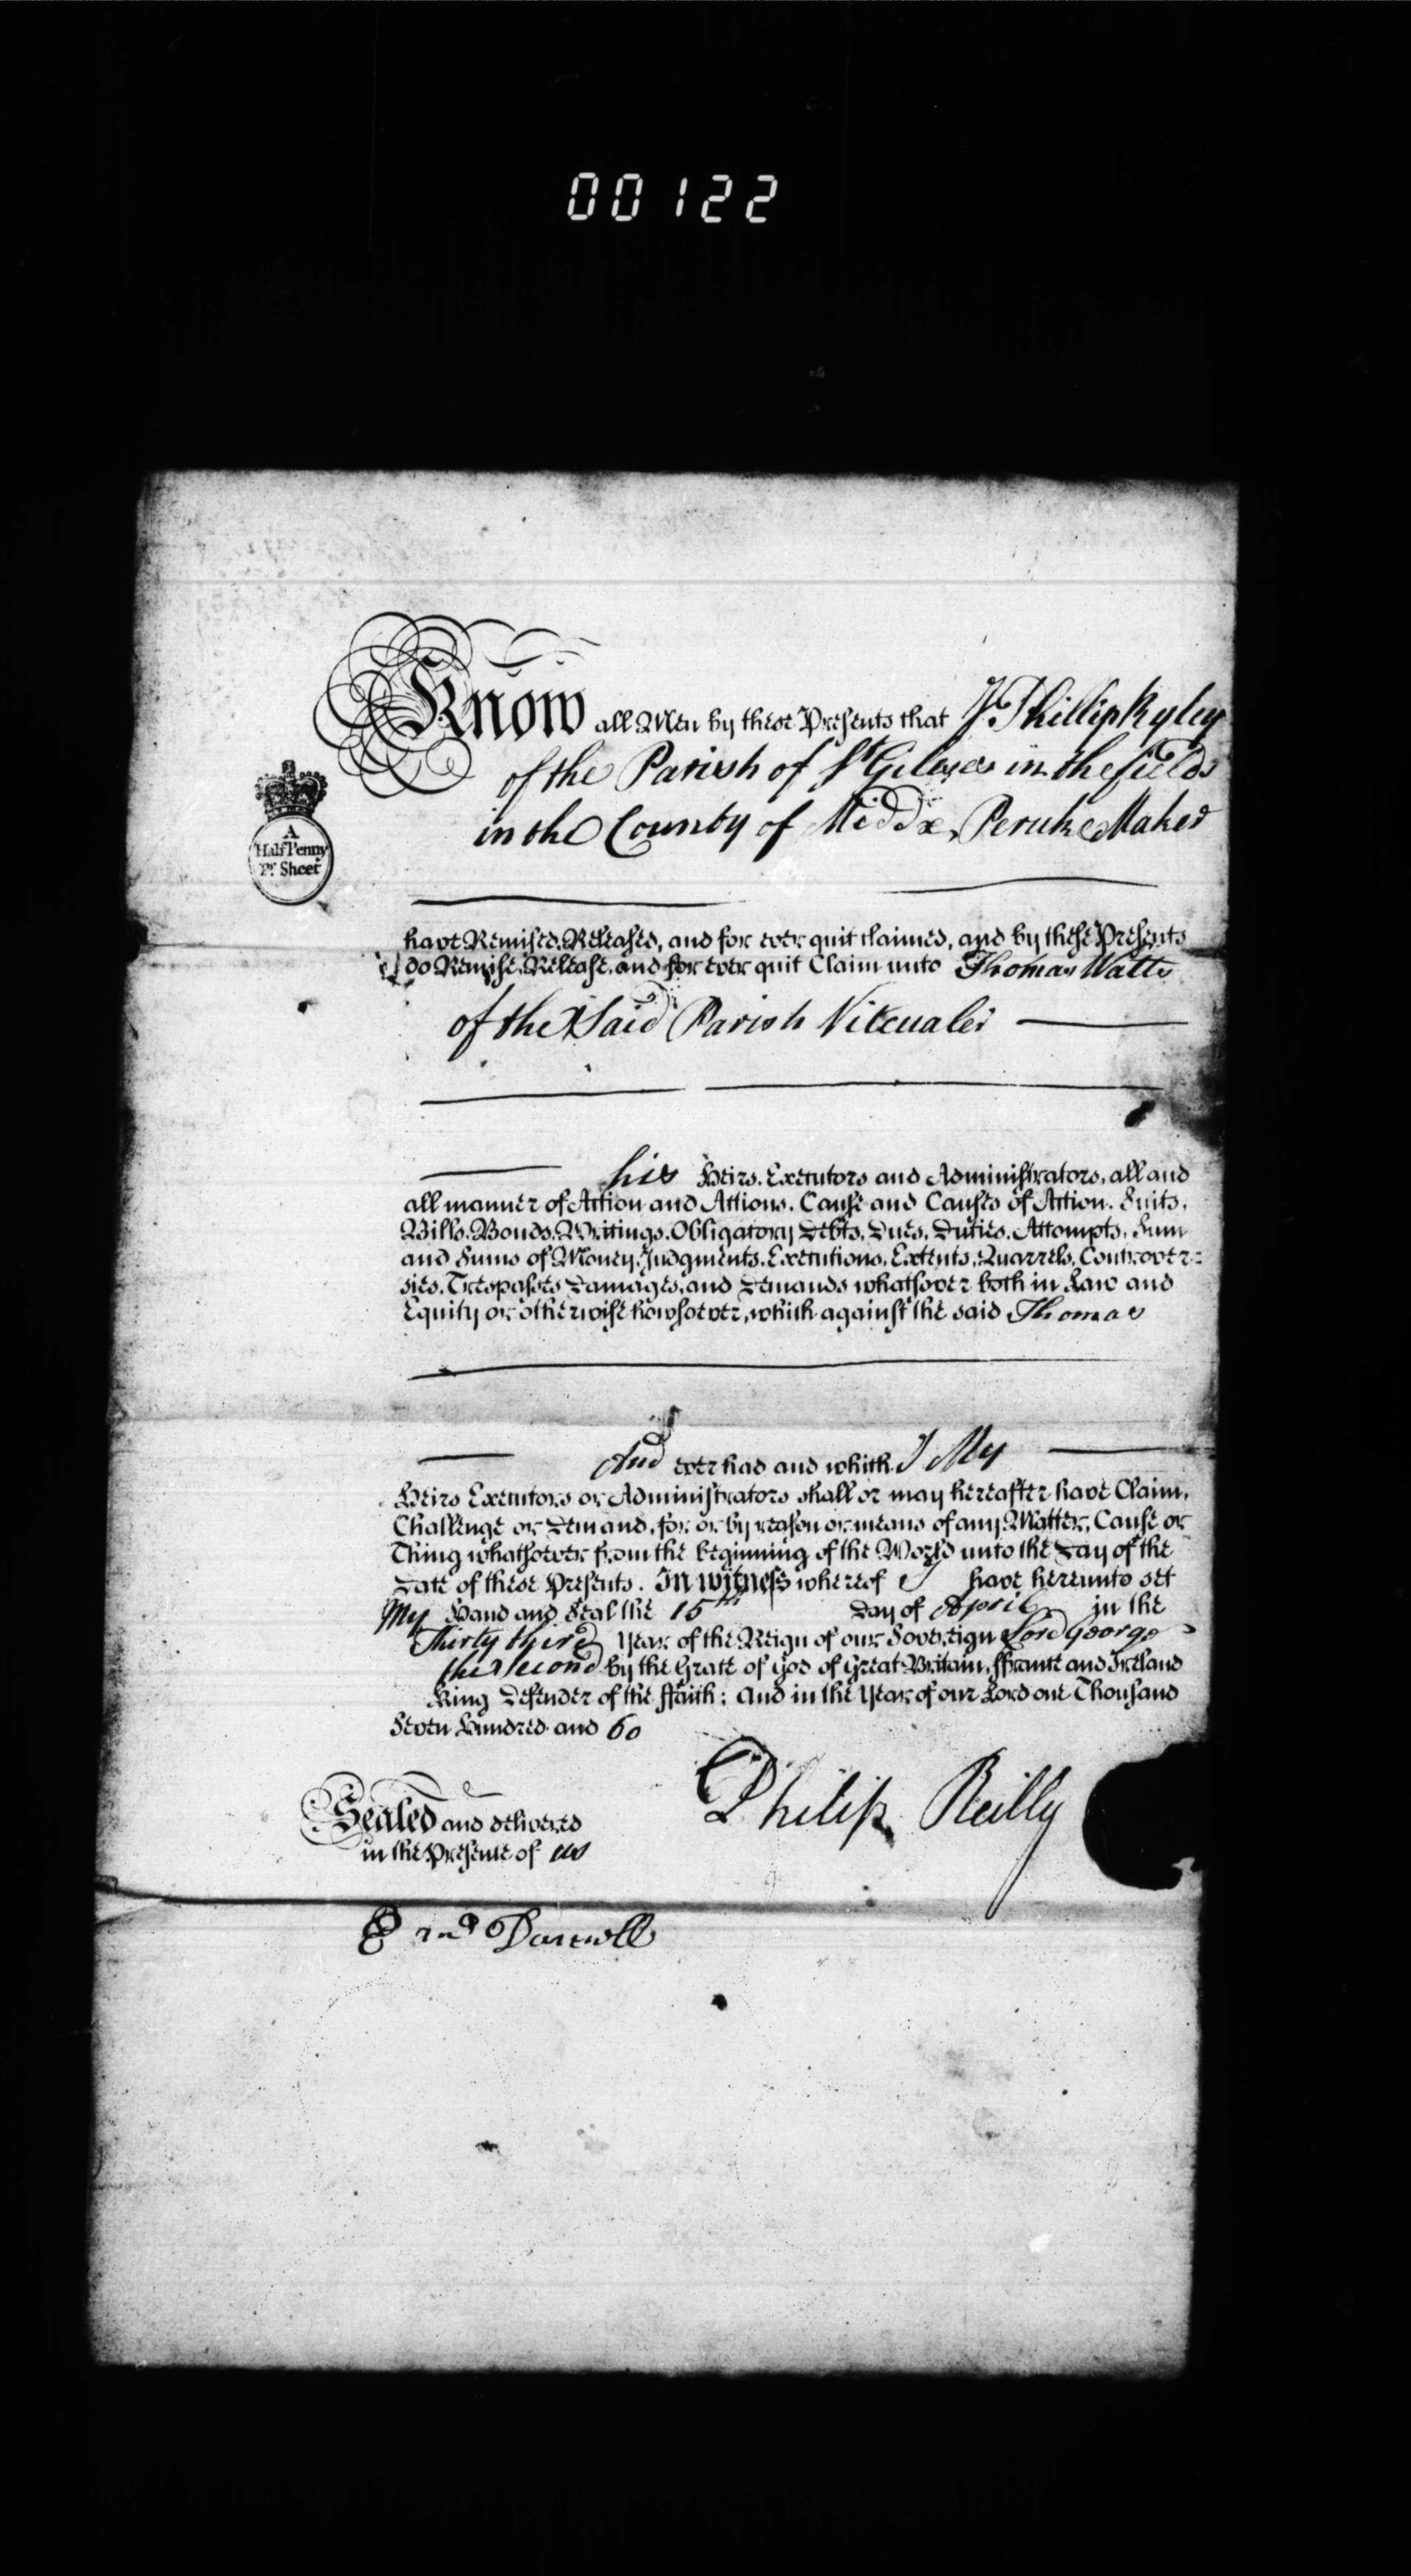 00122
Know all Men by these Presents that I Phillip Ryley
of the Parish of St Gileses in the fields
in the County of Middx Peruke Maker
A
Half Penny
Pr Sheet
have Remised, Released, and for ever quit claimed, and by these Presents
do Remise, Release, and for ever quit Claim unto Thomas Watts
of the Said Parish Vitcualer
his Heirs, Executors and Administrators, all and
all manner of Action and Actions, Cause and Causes of Action, Suits,
Bills, Bonds, Writings, Obligatory Debts, Dues, Duties, Attompts, Sum
and Sums of Money, Judgments, Executions, Extents, Quarrels, Controver=
sies, Trespasses Damages, and Demands whatsover both in Law and
Equity or otherwise howsoever, which against the said Thomas
And ever had and which I My
Heirs Executors or Administrators shall or may hereafter have Claim,
Challenge or Demand, for or by reason or means of any Matter, Cause or
Thing whatsoever from the beginning of the World unto the Day of the
Date of these Presents. In witness whereof I have hereunto set
My Hand and Seal the 15th day of April in the
Thirty third Year of the Reign of our Sovereign Lord George
the Second by the Grace of God of Great Britain, ffrance and Ireland
King Defender of the ffaith; and in the Year of our Lord one Thousand
Seven Hundred and 60
Philip Reilly
Sealed and delivered
in the Presence of us